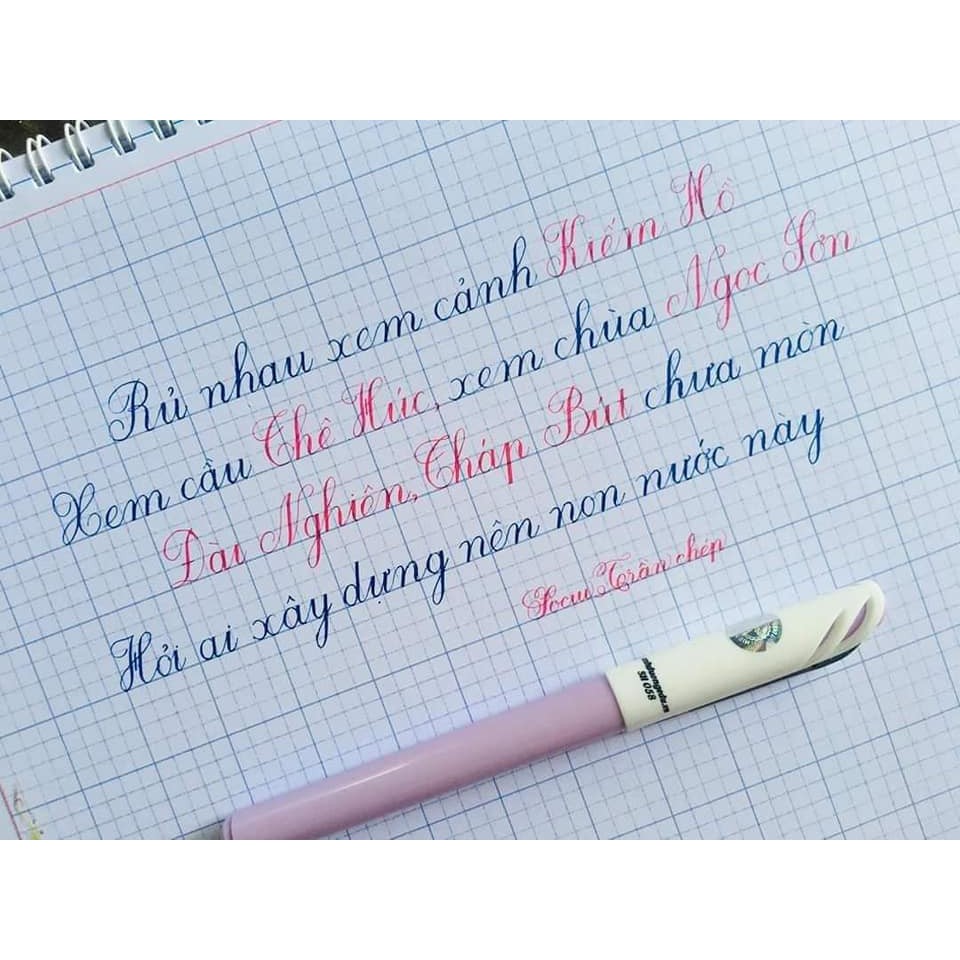 Rủ nhau xem cảnh Kiếm Hồ
Xem cầu Thê Húc, xem chùa Ngọc Sơn
Đài Nghiên, Tháp Bút chưa mòn
Hỏi ai xây dựng nên non nước này
Trần chép
SH 058